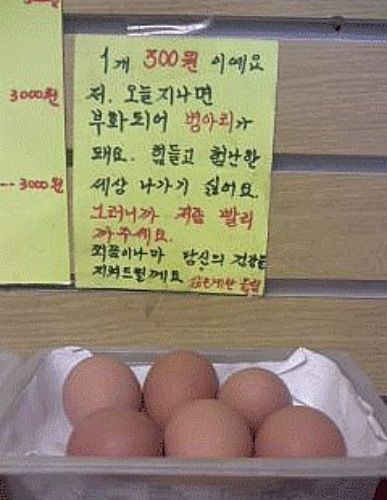 3000원
--3000원
1개 300원 이예요
저. 오늘지나면
부화되어 병아리가
돼요. 힘들고 험난한
세상 나가기 싫어요.
그러니까 저좀 빨리
까주세요.
쪼끔이나마 당신의 건강을
지켜드릴께요
삶은계란 올림